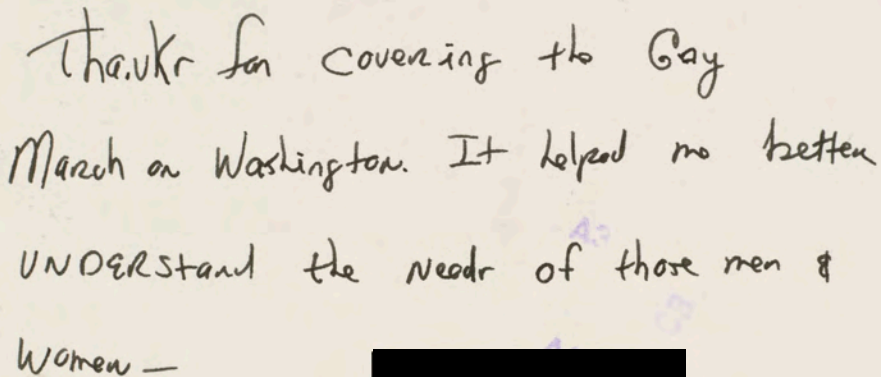 Thanks for covering the Gay
March on Washington. It helped me better
UNDERStand the Needs of those men &
Women —